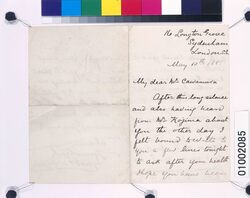 Longton Grove
Sydenham
London
May 10th
My dear Mr
After this long silence
and also having heard
from Mr Kojima about
you the other day I
felt bound to write to
you a few lines tonight
to ask after your health
I hope you have been
01002085